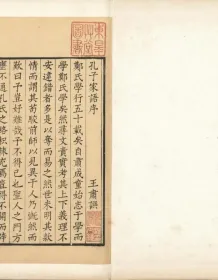 孔子家語序
王肅譔
鄭氏學行五十載矣自肅成童始志于學而
學鄭氏學矣然尋文責實考其上下義理不
安違錯者多是以奪而易之然世未明其款
情而謂其苟駁前師以見異于人乃慨然而
歎曰予豈好難哉予不得已也聖人之門方
壅不通孔氏之路枳棘充焉豈得不開而辟